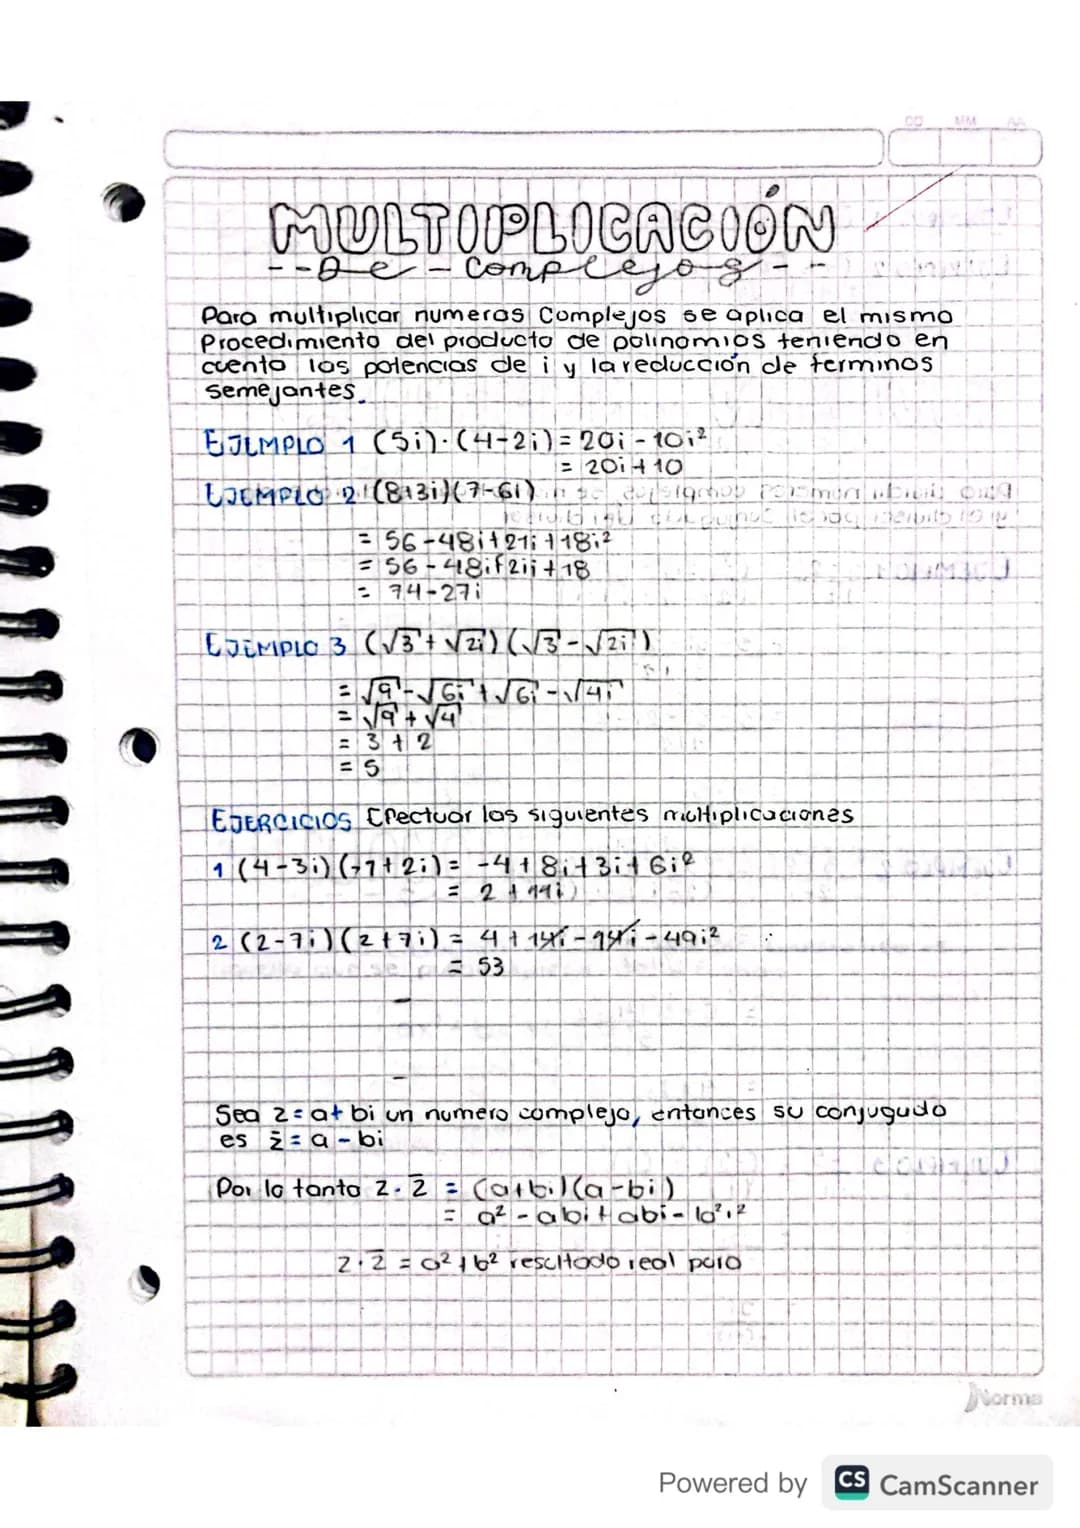 DD MM AA
MULTIPLICACIÓN
--De-Complejos--
Para multiplicar numeros Complejos se aplica el mismo
Procedimiento del producto de polinomios teniendo en
cuenta las potencias de i y la reducción de terminos
semejantes.
EJEMPLO 1 (5i)·(4-2i) = 20i - 10i²
= 20i + 10
EJEMPLO 2 (8+3i)(7-6i)
= 56 - 48i + 21i + 18i²
= 56 - 48i + 21i + 18
= 74 - 27i
EJEMPLO 3 (√3 + √2i) (√3 - √2i)
= √9 - √6i + √6i - √4i
= √9 + √4
= 3 + 2
= 5
EJERCICIOS Efectuar las siguientes multiplicaciones
1 (4-3i)(-1+2i) = -4 + 8i + 3i + 6i²
= 2 + 11i
2 (2-7i)(2+7i) = 4 + 14i - 14i - 49i²
= 53
Sea z = a + bi un numero complejo, entonces su conjugado
es z̄ = a - bi
Por lo tanto z · z̄ = (a+bi)(a-bi)
= a² - abi + abi - b²i²
z · z̄ = a² + b² resultado real puro
Norma
Powered by CS CamScanner